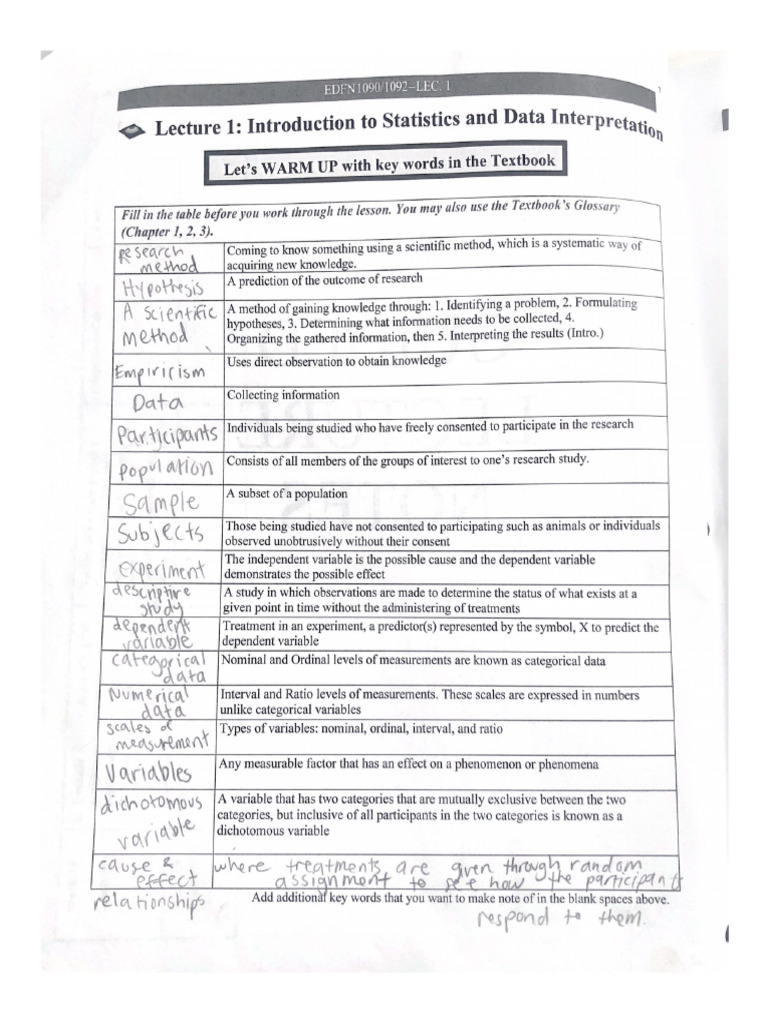 EDFN1090/1092-LEC. 1
Lecture 1: Introduction to Statistics and Data Interpretation
Let's WARM UP with key words in the Textbook
Fill in the table before you work through the lesson. You may also use the Textbook's Glossary
(Chapter 1, 2, 3).
Research
method
Coming to know something using a scientific method, which is a systematic way of
acquiring new knowledge.
Hypothesis
A prediction of the outcome of research
A Scientific
Method
A method of gaining knowledge through: 1. Identifying a problem, 2. Formulating
hypotheses, 3. Determining what information needs to be collected, 4.
Organizing the gathered information, then 5. Interpreting the results (Intro.)
Empiricism
Uses direct observation to obtain knowledge
Data
Collecting information
Participants
Individuals being studied who have freely consented to participate in the research
population
Consists of all members of the groups of interest to one's research study.
Sample
A subset of a population
Subjects
Those being studied have not consented to participating such as animals or individuals
observed unobtrusively without their consent
experiment
The independent variable is the possible cause and the dependent variable
demonstrates the possible effect
descriptive
study
A study in which observations are made to determine the status of what exists at a
given point in time without the administering of treatments
dependent
variable
Treatment in an experiment, a predictor(s) represented by the symbol, X to predict the
dependent variable
categorical
data
Nominal and Ordinal levels of measurements are known as categorical data
Numerical
data
Interval and Ratio levels of measurements. These scales are expressed in numbers
unlike categorical variables
scales of
measurement
Types of variables: nominal, ordinal, interval, and ratio
Variables
Any measurable factor that has an effect on a phenomenon or phenomena
dichotomous
variable
A variable that has two categories that are mutually exclusive between the two
categories, but inclusive of all participants in the two categories is known as a
dichotomous variable
cause &
effect
relationships
where treatments are given through random
assignment to see how the participants
respond to them.
Add additional key words that you want to make note of in the blank spaces above.